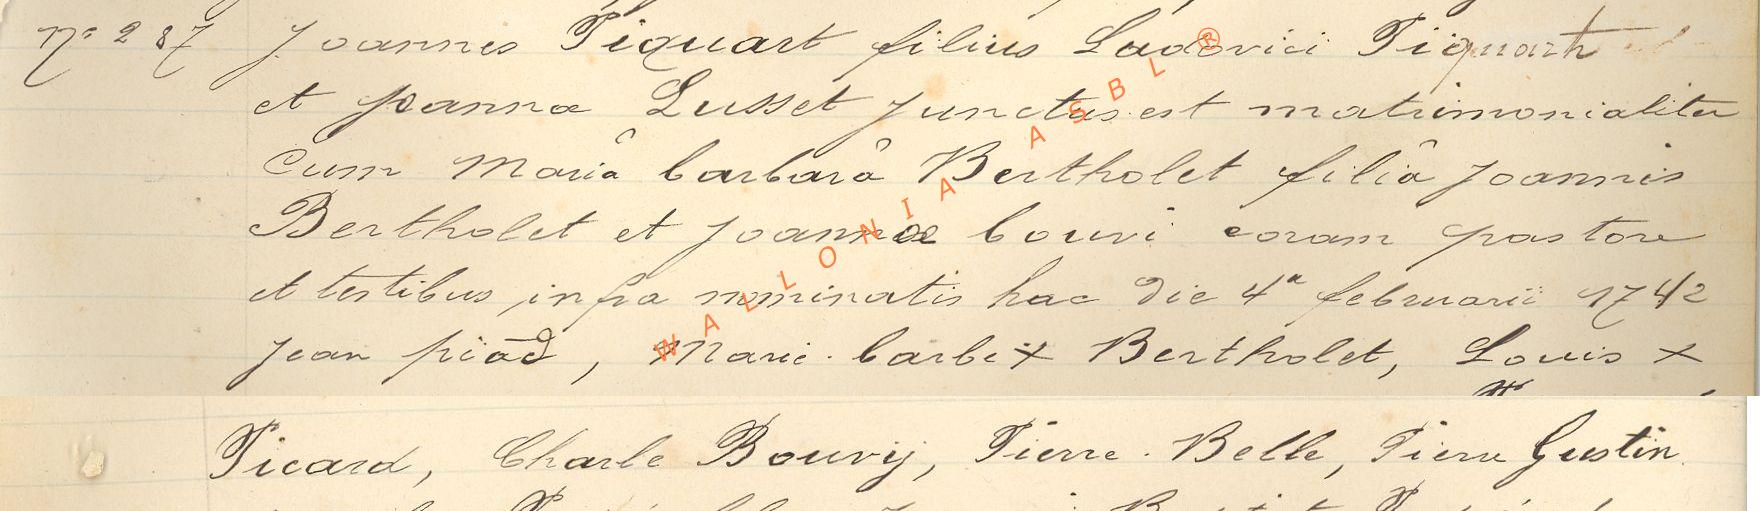 N° 287 Joannes Piquart filius Ludovici Piquart
et Joannæ Lusset junctus est matrimonialiter
Cum Mariâ barbarâ Bertholet filiâ Joannis
Bertholet et Joannæ bouvi coram pastore
et testibus infra nominatis hac die 4a februarii 1742
Jean piäd, Marie barbe x Bertholet, Louis x
Picard, Charle Bouvÿ, Pierre Belle, Pierre Gustin
WALLONIA ASBL ®